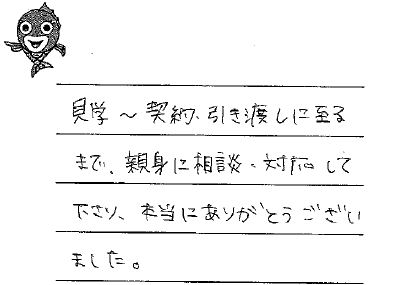 見学～契約、引き渡しに至る
まで、親身に相談・対応して
下さり、本当にありがとうござい
ました。